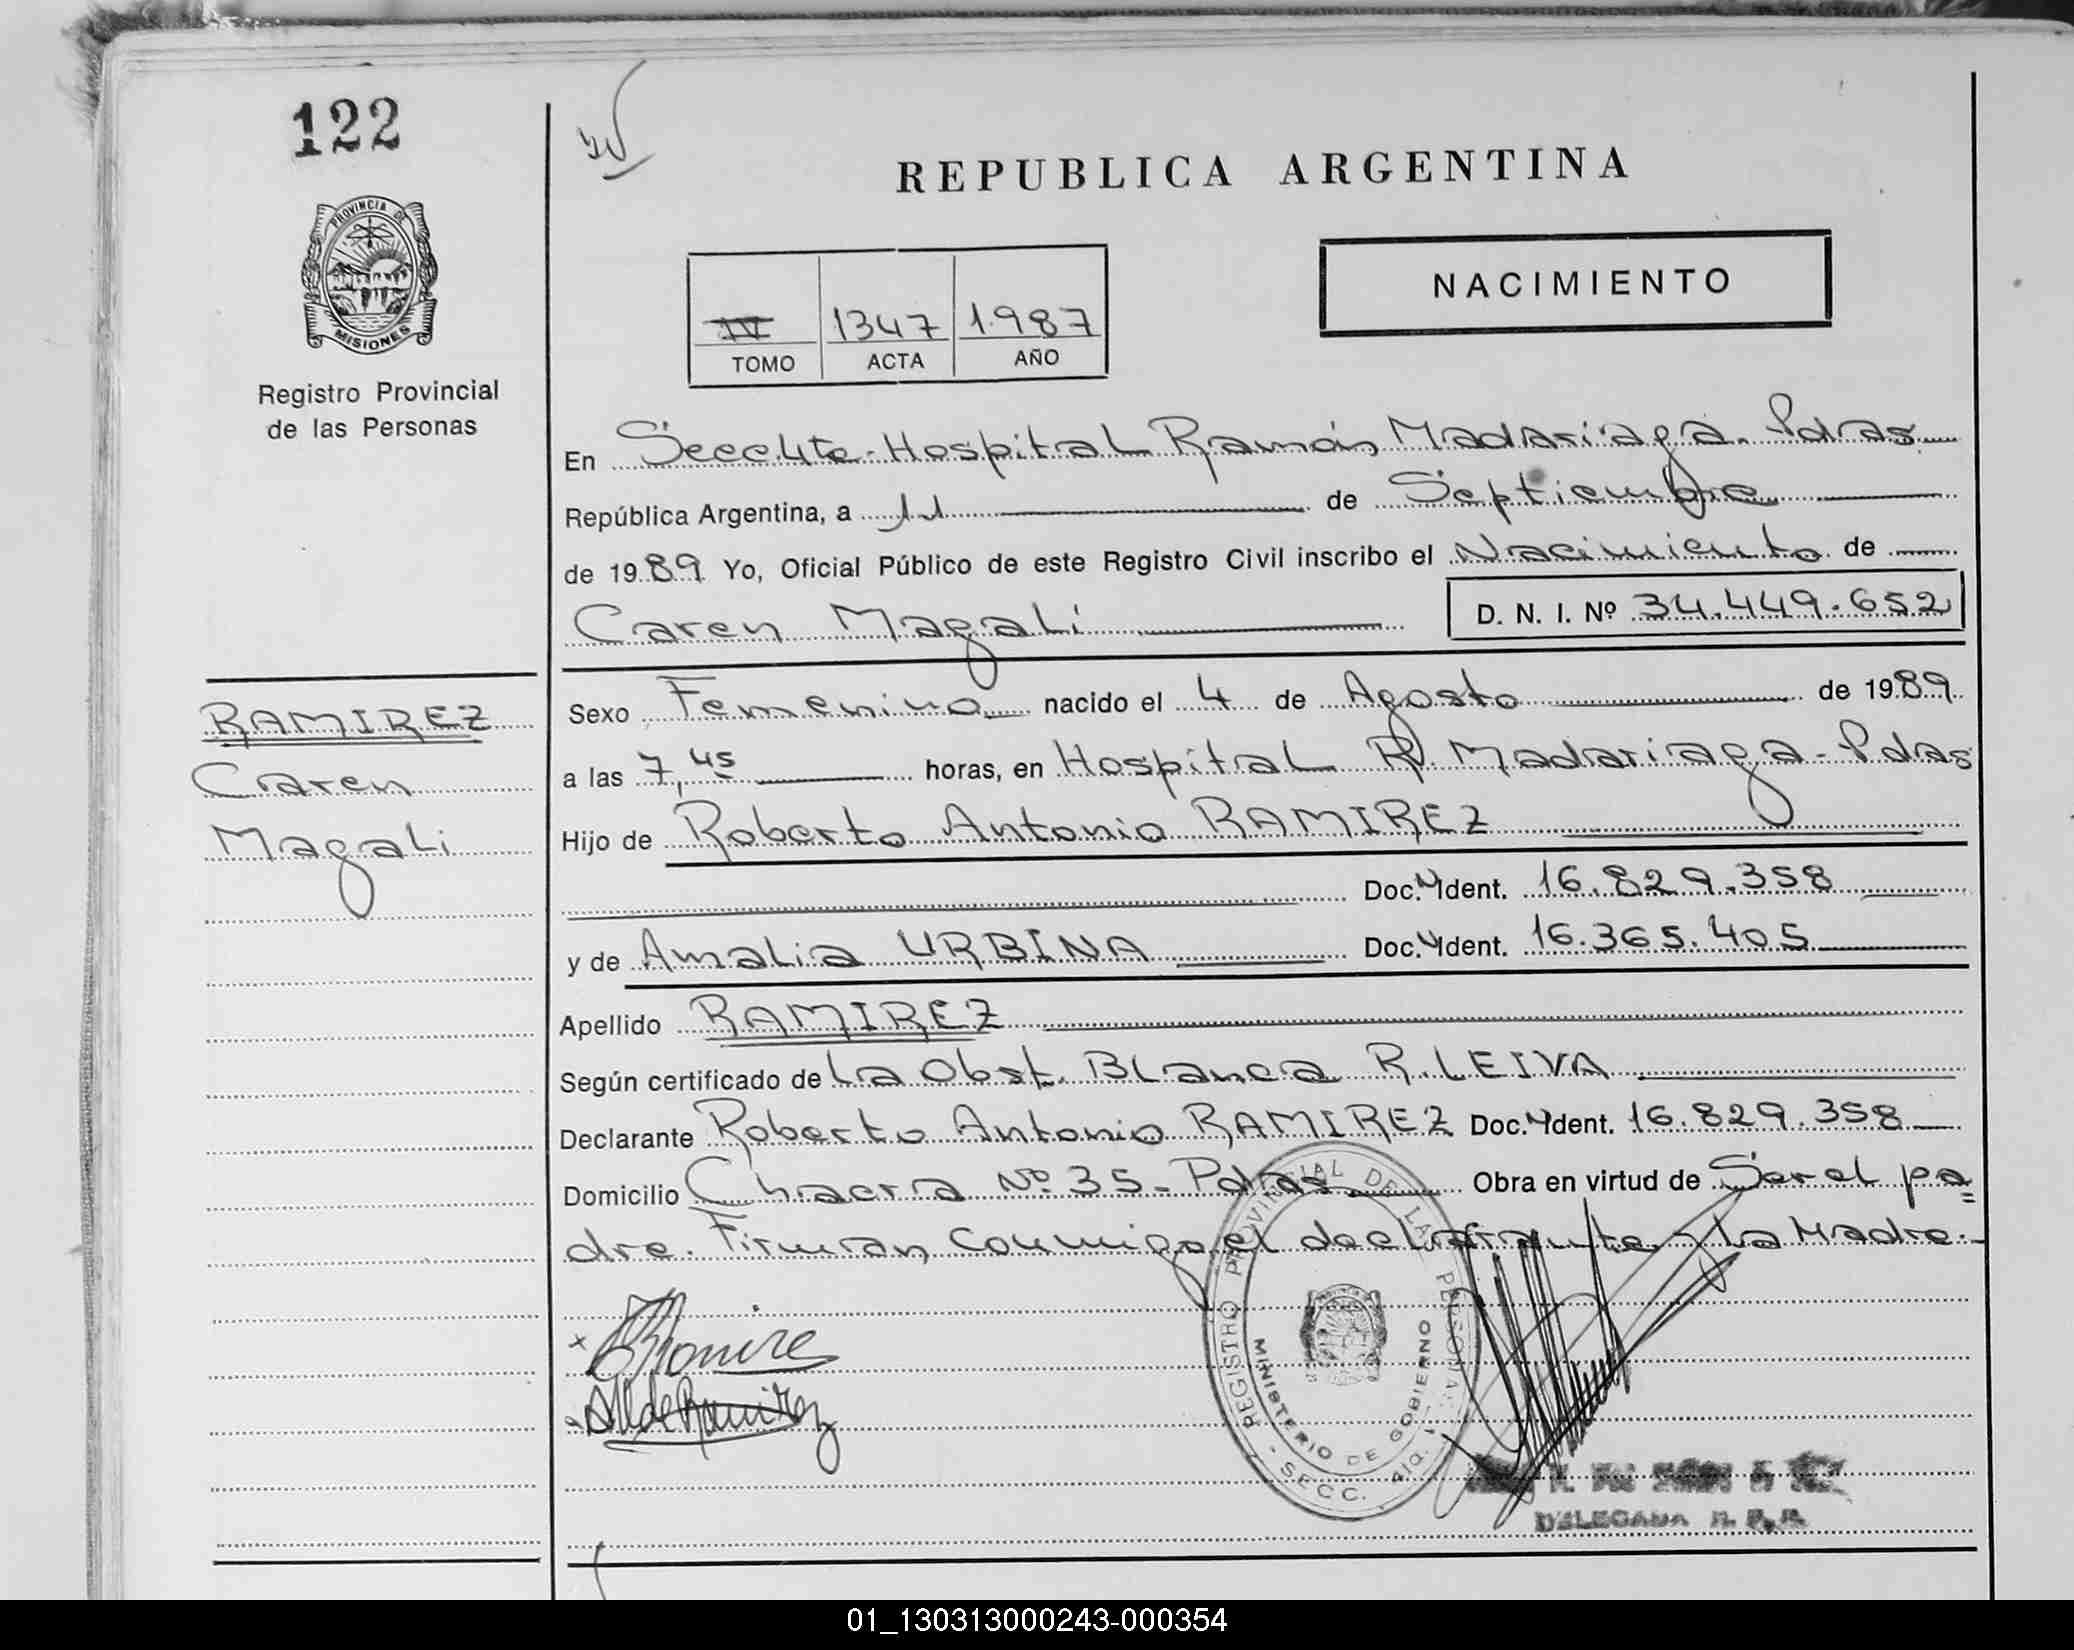 122
REPUBLICA ARGENTINA
PROVINCIA DE
MISIONES
NACIMIENTO
IV 1347 1.987
TOMO ACTA AÑO
Registro Provincial
de las Personas
En Secc 4ta. Hospital Ramón Madariaga. Pdas
República Argentina, a 11 de Septiembre
de 1989 Yo, Oficial Público de este Registro Civil inscribo el Nacimiento de
Caren Magali D. N. I. Nº 34.449.652
RAMIREZ
Caren
Magali
Sexo Femenino nacido el 4 de Agosto de 1989
a las 7,45 horas, en Hospital R. Madariaga - Pdas
Hijo de Roberto Antonio RAMIREZ
Doc. Ident. 16.829.358
y de Amalia URBINA Doc. Ident. 16.365.405
Apellido RAMIREZ
Según certificado de La Obst. Blanca R. LEIVA
Declarante Roberto Antonio RAMIREZ Doc. Ident. 16.829.358
Domicilio Chacra Nº 35 - Pdas Obra en virtud de Ser el pa=
dre. Firman conmigo el declarante y La Madre.
REGISTRO PROVINCIAL DE LAS PERSONAS
MINISTERIO DE GOBIERNO
- SECC.
DELEGADA R. P. P.
01_130313000243-000354